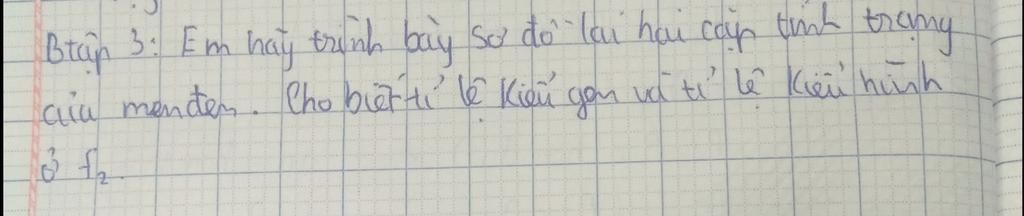 Btập 3: Em hãy trình bày sơ đồ lai hai cặp tính trạng
của menđen. Cho biết tỉ lệ kiểu gen và tỉ lệ kiểu hình
ở f₂.